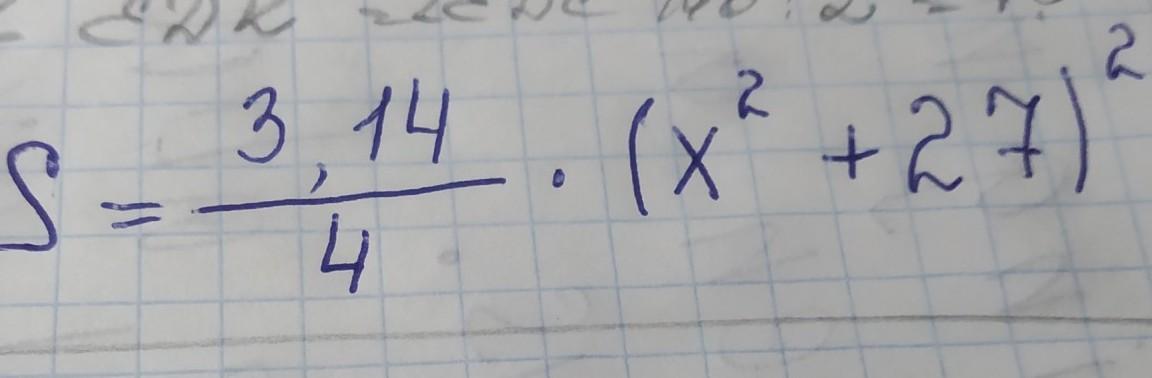 S = 3,14/4 · (x² + 27)²